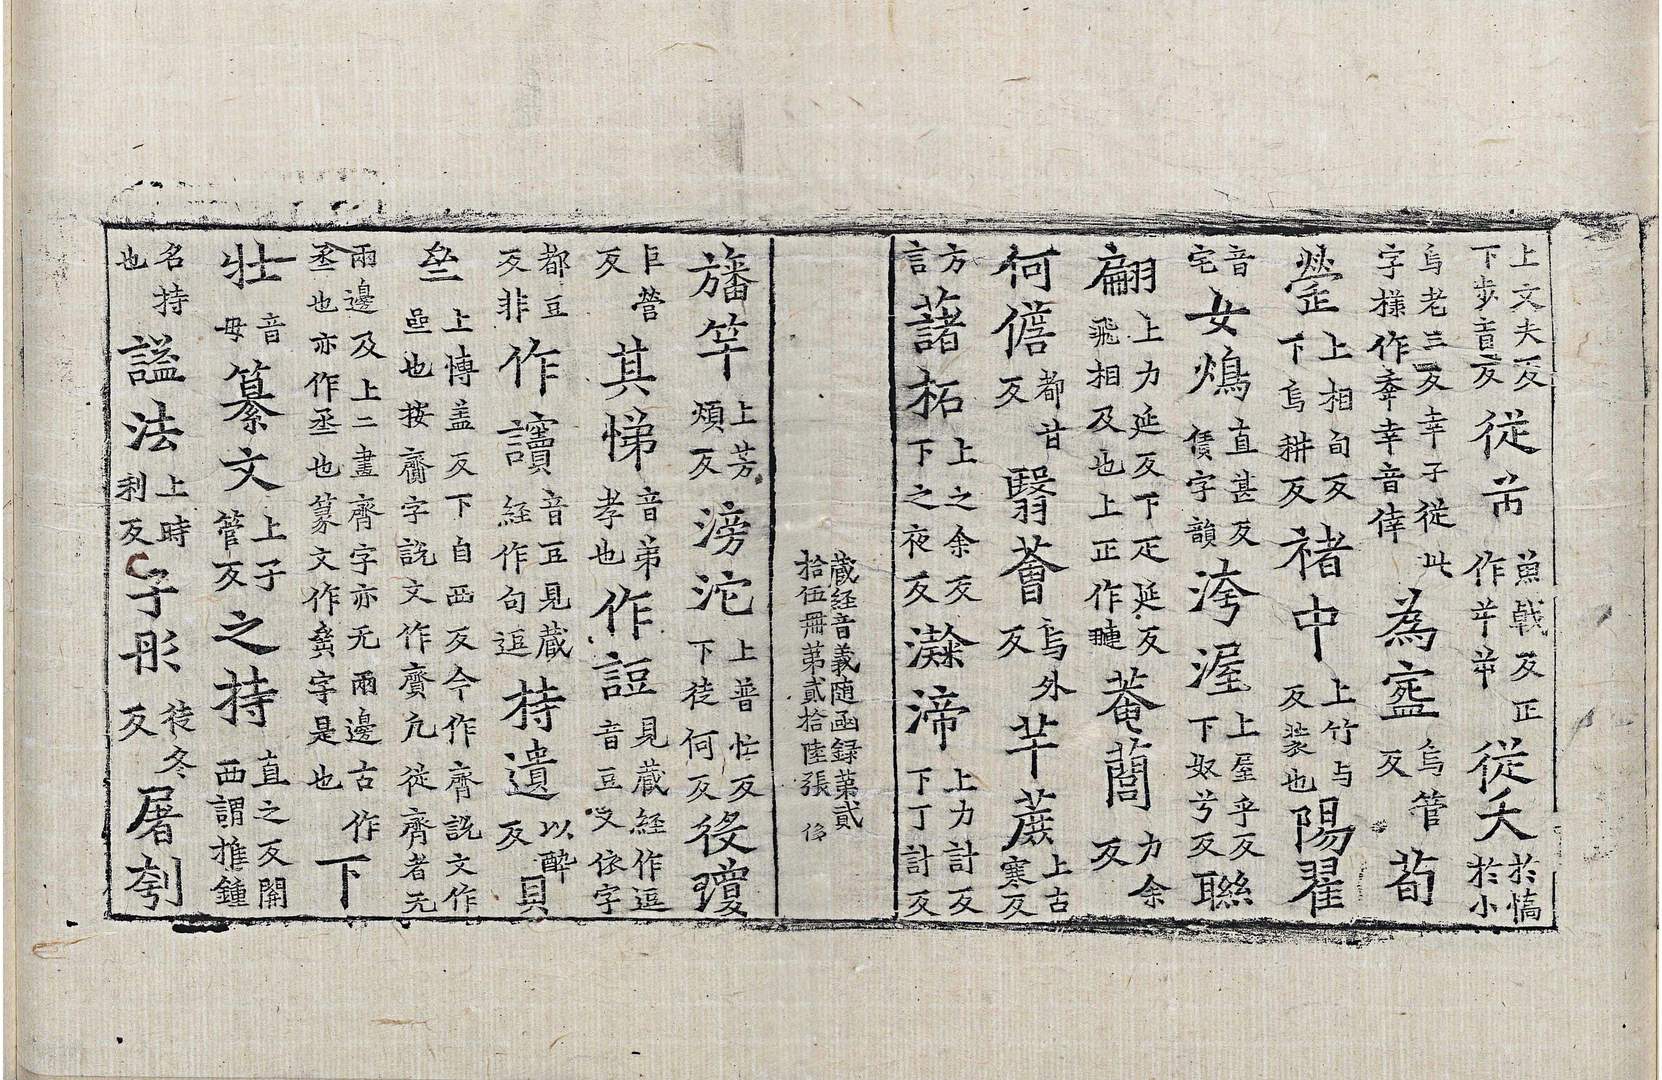 上文夫反下步盲反 従芇 魚戟反正作芉芇 従夭 於憍於小
烏老三反幸子従此字樣作㚔幸音倖 為寍 烏管反 荀
上相旬反下烏耕反 禇中 上竹与反裝也 陽翟
音宅 女鴆 直甚反賃字韻 洿渥 上屋乎反下奴兮反 聮
翩 上力延反下疋延反飛相及也上正作聯 菴䕡 力余反
何儋 都甘反 翳薈 烏外反 芉蔗 上古寒反
方言 藷柘 上之余反下之夜反 瀿渧 上力計反下丁計反
藏経音義随函録第貳拾伍冊第貳拾陸張
旛竿 上芳煩反 滂沱 上普忙反下徒何反 後瓊
巨營反 其悌 音弟孝也 作䛠 見藏経作逗音豆又依字
都豆反非 作讀 音豆見藏経作句逗 持遺 以醉反 貝
上博盖反下自西反今作齊説文作亝也按齋字說文作齎亢従齊者无
兩邊及上二畫齊字亦无兩邊古作丞也亦作丞也篆文作字是也 下
壮 音母 纂文 上子管反 之持 直之反關西謂推鍾
名持也 謚法 上時利反 子彤 徒冬反 屠刳